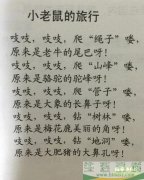 小老鼠的旅行
吱吱,吱吱,爬“绳子”喽,
原来是老牛的尾巴呀!
吱吱,吱吱,爬“山峰”喽,
原来是骆驼的驼峰呀!
吱吱,吱吱,爬“管子”喽,
原来是大象的长鼻子呀!
吱吱,吱吱,钻“树林”喽,
原来是梅花鹿美丽的角呀!
吱吱,吱吱,钻“地洞”喽,
原来是大肥猪的大鼻孔呀!